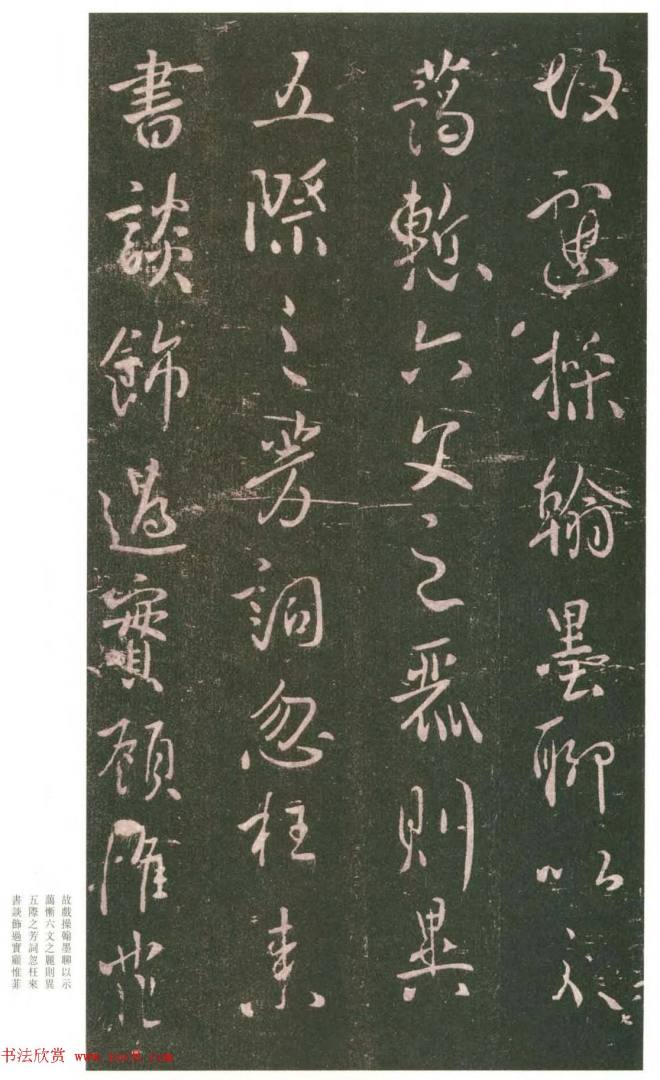 故戲操翰墨聊以示
藹慙六文之麗則異
五際之芳詞忽枉來
書談飾過實顧惟菲
故戲操翰墨聊以示
藹慚六文之麗則異
五際之芳詞忽枉來
書談飾過實顧惟菲
书法欣赏